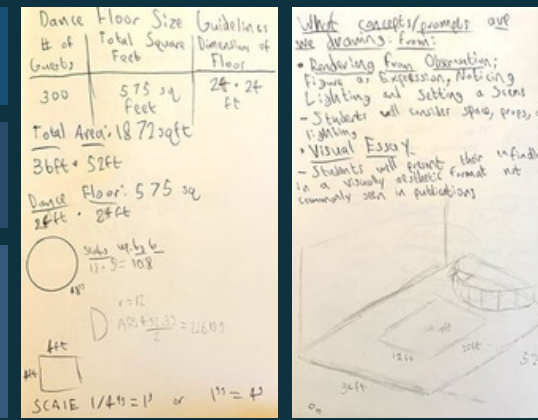 Dance Floor Size Guidelines
# of Guests
Total Square Feet
Dimensions of Floor
300
575 sq feet
24 • 24 ft
Total Area: 1872 sqft
36ft • 52ft
Dance Floor: 575 sq
24ft • 24ft
= 108
r=12
4ft
4ft
SCALE 1/4" = 1' or 1" = 4'
What concepts/prompts are
we drawing from:
• Rendering from Observation;
Figure as Expression, Noticing
Lighting and Setting a Scene
- Students will consider space, props,
lighting
• Visual Essay
- Students will present their
in a visually aesthetic format not
commonly seen in publications
12ft
20ft
36ft